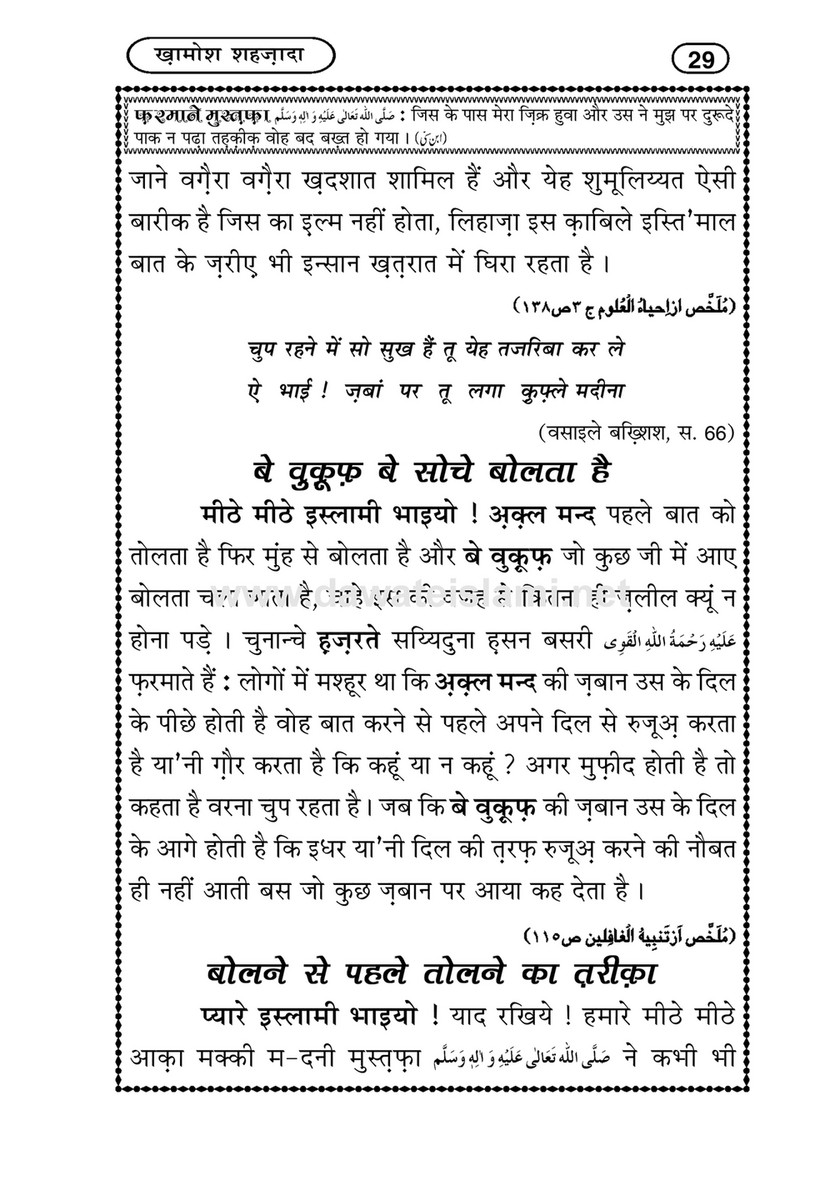 ख़ामोश शहज़ादा
29
फ़रमाने मुस्त़फ़ा صَلَّی اللہ تَعَالٰی عَلَیْہِ وَاٰلِہٖ وَسَلَّم : जिस के पास मेरा ज़िक्र हुवा और उस ने मुझ पर दुरूदे
पाक न पढ़ा तह़क़ीक़ वोह बद बख़्त हो गया । (ابن سنی)
जाने वग़ैरा वग़ैरा ख़दशात शामिल हैं और येह शुमूलिय्यत ऐसी
बारीक है जिस का इ़ल्म नहीं होता, लिहाज़ा इस क़ाबिले इस्ति'माल
बात के ज़रीए़ भी इन्सान ख़त़रात में घिरा रहता है ।
(مُلَخَّص از اِحیاءُ الْعُلوم ج ۳ ص ۱۳۸)
चुप रहने में सो सुख हैं तू येह तजरिबा कर ले
ऐ भाई ! ज़बां पर तू लगा क़ुफ़्ले मदीना
(वसाइले बख़्शिश, स. 66)
बे वुक़ूफ़ बे सोचे बोलता है
मीठे मीठे इस्लामी भाइयो ! अ़क़्ल मन्द पहले बात को
तोलता है फिर मुंह से बोलता है और बे वुक़ूफ़ जो कुछ जी में आए
बोलता चला जाता है, चाहे इस की वजह से कितना ही ज़लील क्यूं न
होना पड़े । चुनान्चे ह़ज़रते सय्यिदुना ह़सन बसरी عَلَیْہِ رَحْمَۃُ اللہِ الْقَوِی
फ़रमाते हैं : लोगों में मश्हूर था कि अ़क़्ल मन्द की ज़बान उस के दिल
के पीछे होती है वोह बात करने से पहले अपने दिल से रुजूअ़ करता
है या'नी ग़ौर करता है कि कहूं या न कहूं ? अगर मुफ़ीद होती है तो
कहता है वरना चुप रहता है । जब कि बे वुक़ूफ़ की ज़बान उस के दिल
के आगे होती है कि इधर या'नी दिल की त़रफ़ रुजूअ़ करने की नौबत
ही नहीं आती बस जो कुछ ज़बान पर आया कह देता है ।
(مُلَخَّص اَز تَنبِیہُ الْغافِلین ص ۱۱۵)
बोलने से पहले तोलने का त़रीक़ा
प्यारे इस्लामी भाइयो ! याद रखिये ! हमारे मीठे मीठे
आक़ा मक्की म-दनी मुस्त़फ़ा صَلَّی اللہ تَعَالٰی عَلَیْہِ وَاٰلِہٖ وَسَلَّم ने कभी भी
www.dawateislami.net